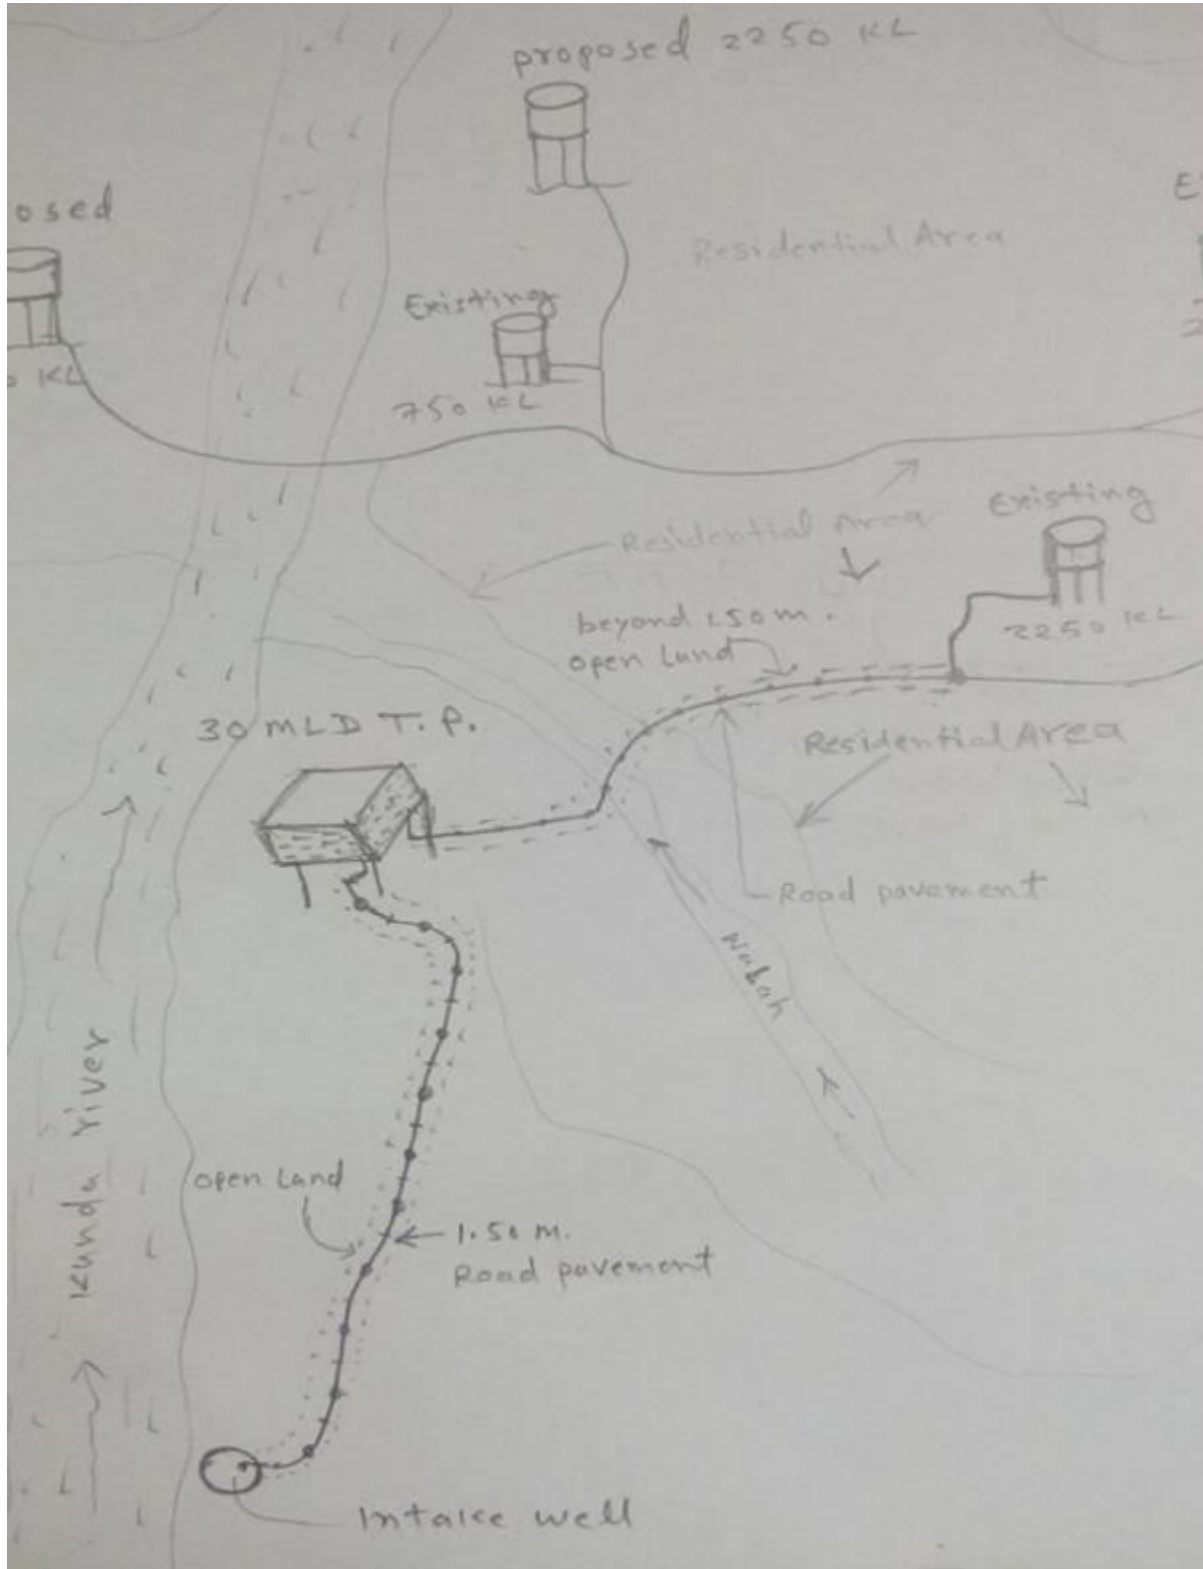 proposed 2250 KL
osed
Residential Area
Existing
KL
750 KL
Existing
Residential Area
beyond 1.50 m.
open Land
2250 KL
30 MLD T.P.
Residential Area
Road pavement
Nalah
Kunda river
open Land
1.50 M.
Road pavement
Intake well